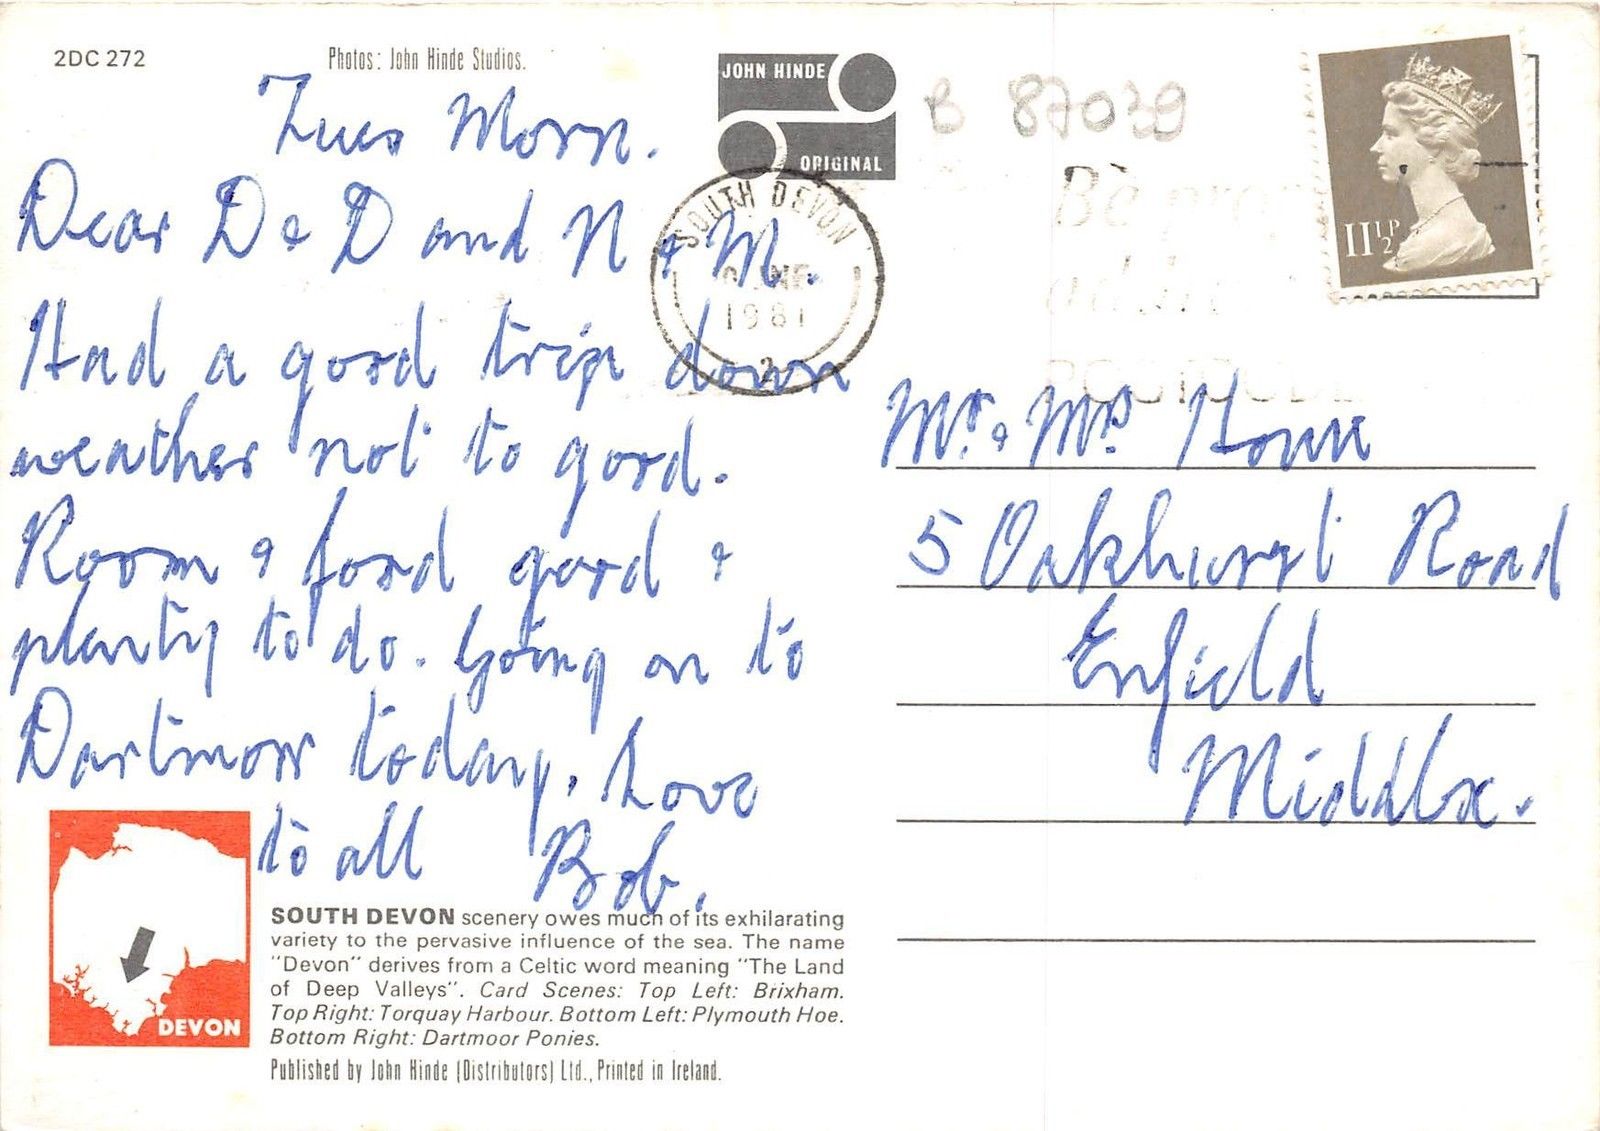 2DC 272
Photos: John Hinde Studios.
JOHN HINDE
ORIGINAL
B 87029
SOUTH DEVON
1981
2
Be
POSTCODE
11½P
Tues Morn.
Dear D & D and N & M.
Had a good trip down
weather not to good.
Room & food good &
plenty to do. Going on to
Dartmoor today, Love
to all Bob.
Mr. & Mrs. Howe
5 Oakhurst Road
Enfield
Middlx.
DEVON
SOUTH DEVON scenery owes much of its exhilarating
variety to the pervasive influence of the sea. The name
"Devon" derives from a Celtic word meaning "The Land
of Deep Valleys". Card Scenes: Top Left: Brixham.
Top Right: Torquay Harbour. Bottom Left: Plymouth Hoe.
Bottom Right: Dartmoor Ponies.
Published by John Hinde (Distributors) Ltd., Printed in Ireland.